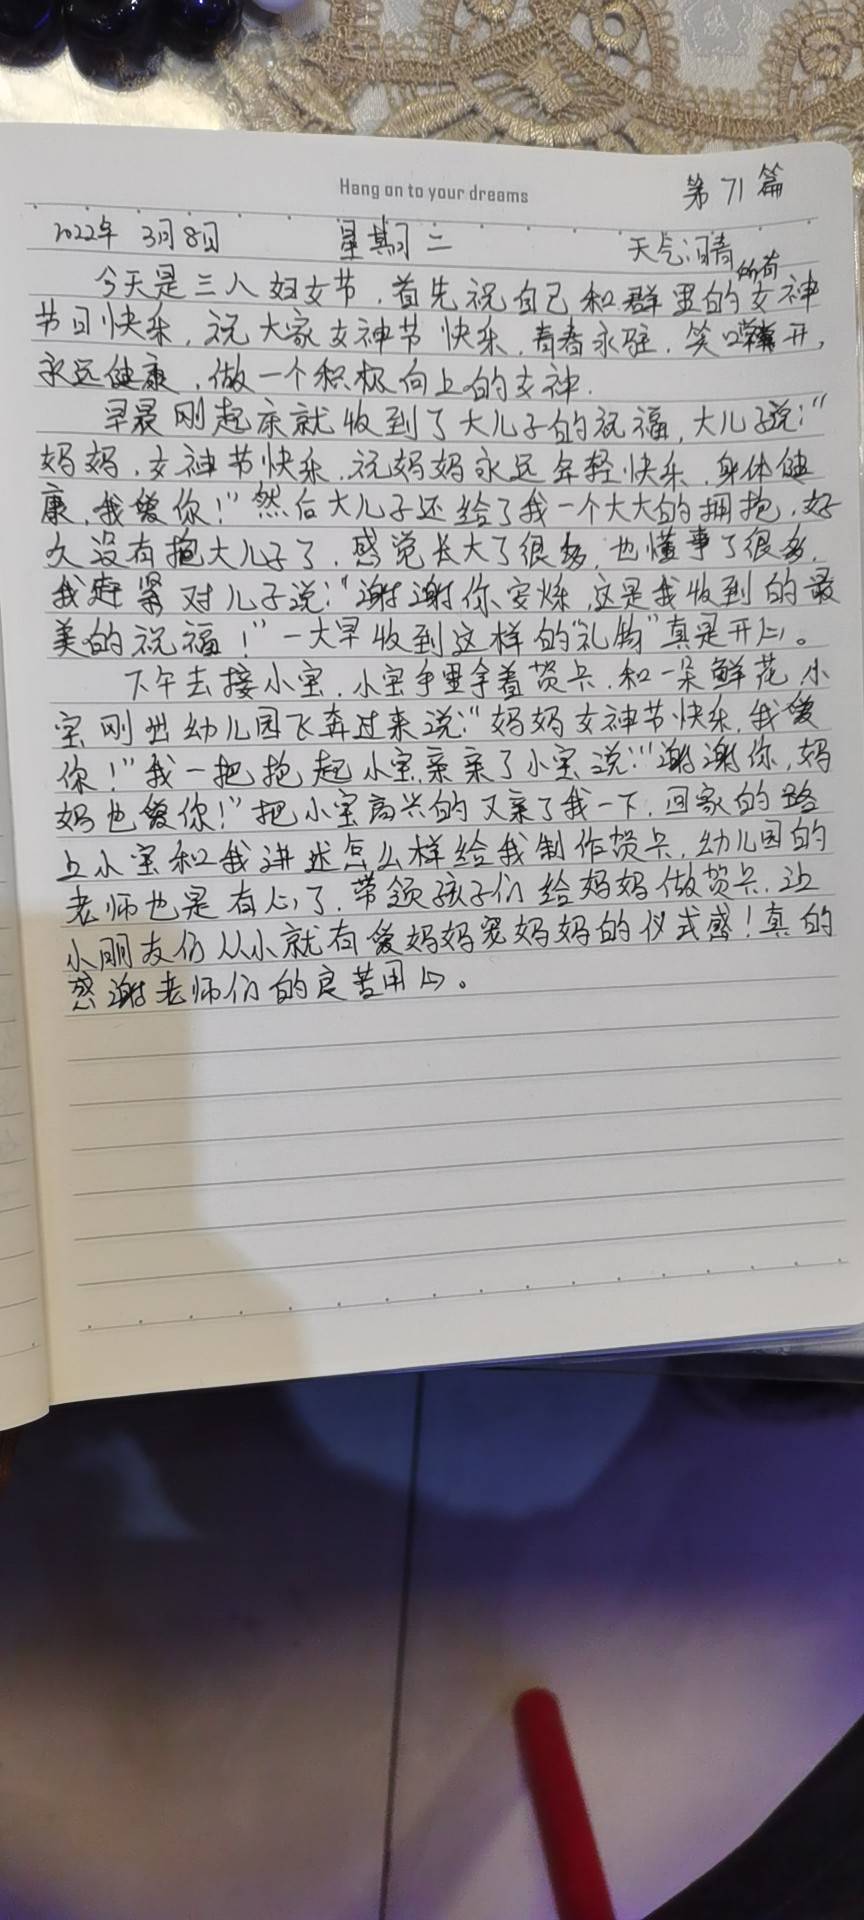 Hang on to your dreams
第71篇
2022年 3月8日 星期二 天气:晴
今天是三八妇女节,首先祝自己和群里的所有的女神
节日快乐,祝大家女神节快乐,青春永驻,笑口常开,
永远健康,做一个积极向上的女神.
早晨刚起床就收到了大儿子的祝福,大儿子说:“
妈妈,女神节快乐,祝妈妈永远年轻快乐,身体健
康,我爱你!”然后大儿子还给了我一个大大的拥抱,好
久没有抱大儿子了,感觉长大了很多,也懂事了很多,
我赶紧对儿子说:“谢谢你安烁,这是我收到的最
美的祝福!”一大早收到这样的“礼物”真是开心。
下午去接小宝,小宝手里拿着贺卡,和一朵鲜花,小
宝刚出幼儿园飞奔过来说:“妈妈女神节快乐,我爱
你!”我一把抱起小宝亲亲了小宝说:“谢谢你,妈
妈也爱你!”把小宝高兴的又亲了我一下,回家的路
上小宝和我讲述怎么样给我制作贺卡,幼儿园的
老师也是有心了,带领孩子们给妈妈做贺卡,让
小朋友们从小就有爱妈妈宠妈妈的仪式感!真的
感谢老师们的良苦用心。